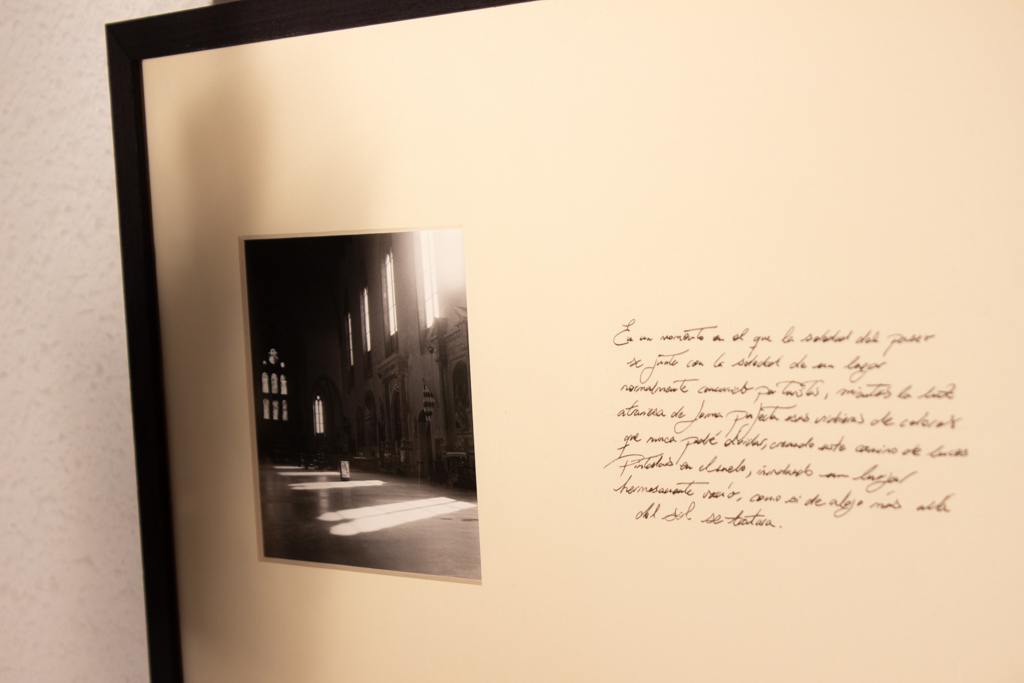 En un momento en el que la soledad del pasear
se junta con la soledad de un lugar
normalmente concurrido por turistas, mientras la luz
atraviesa de forma perfecta esas vidrieras de colores
que nunca podré olvidar, creando este camino de luces
Pintadas en el suelo, inundando un lugar
hermosamente vacío, como si de algo más allá
del Sol se tratara.